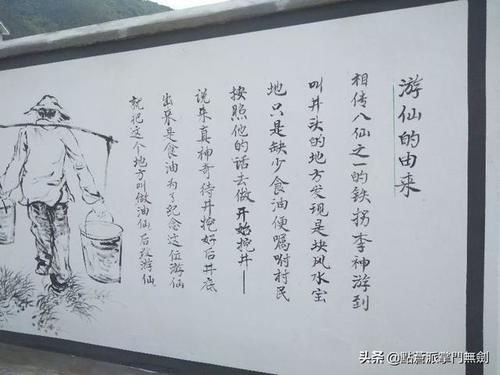 游仙的由来
相传八仙之一的铁拐李神游到
叫井头的地方发现是块风水宝
地只是缺少食油便嘱咐村民
按照他的话去做开始挖井——
说来真神奇待井挖好后井底
出来是食油为了纪念这位游仙
就把这个地方叫做油仙后改游仙
头条 @點蒼派掌門無劍